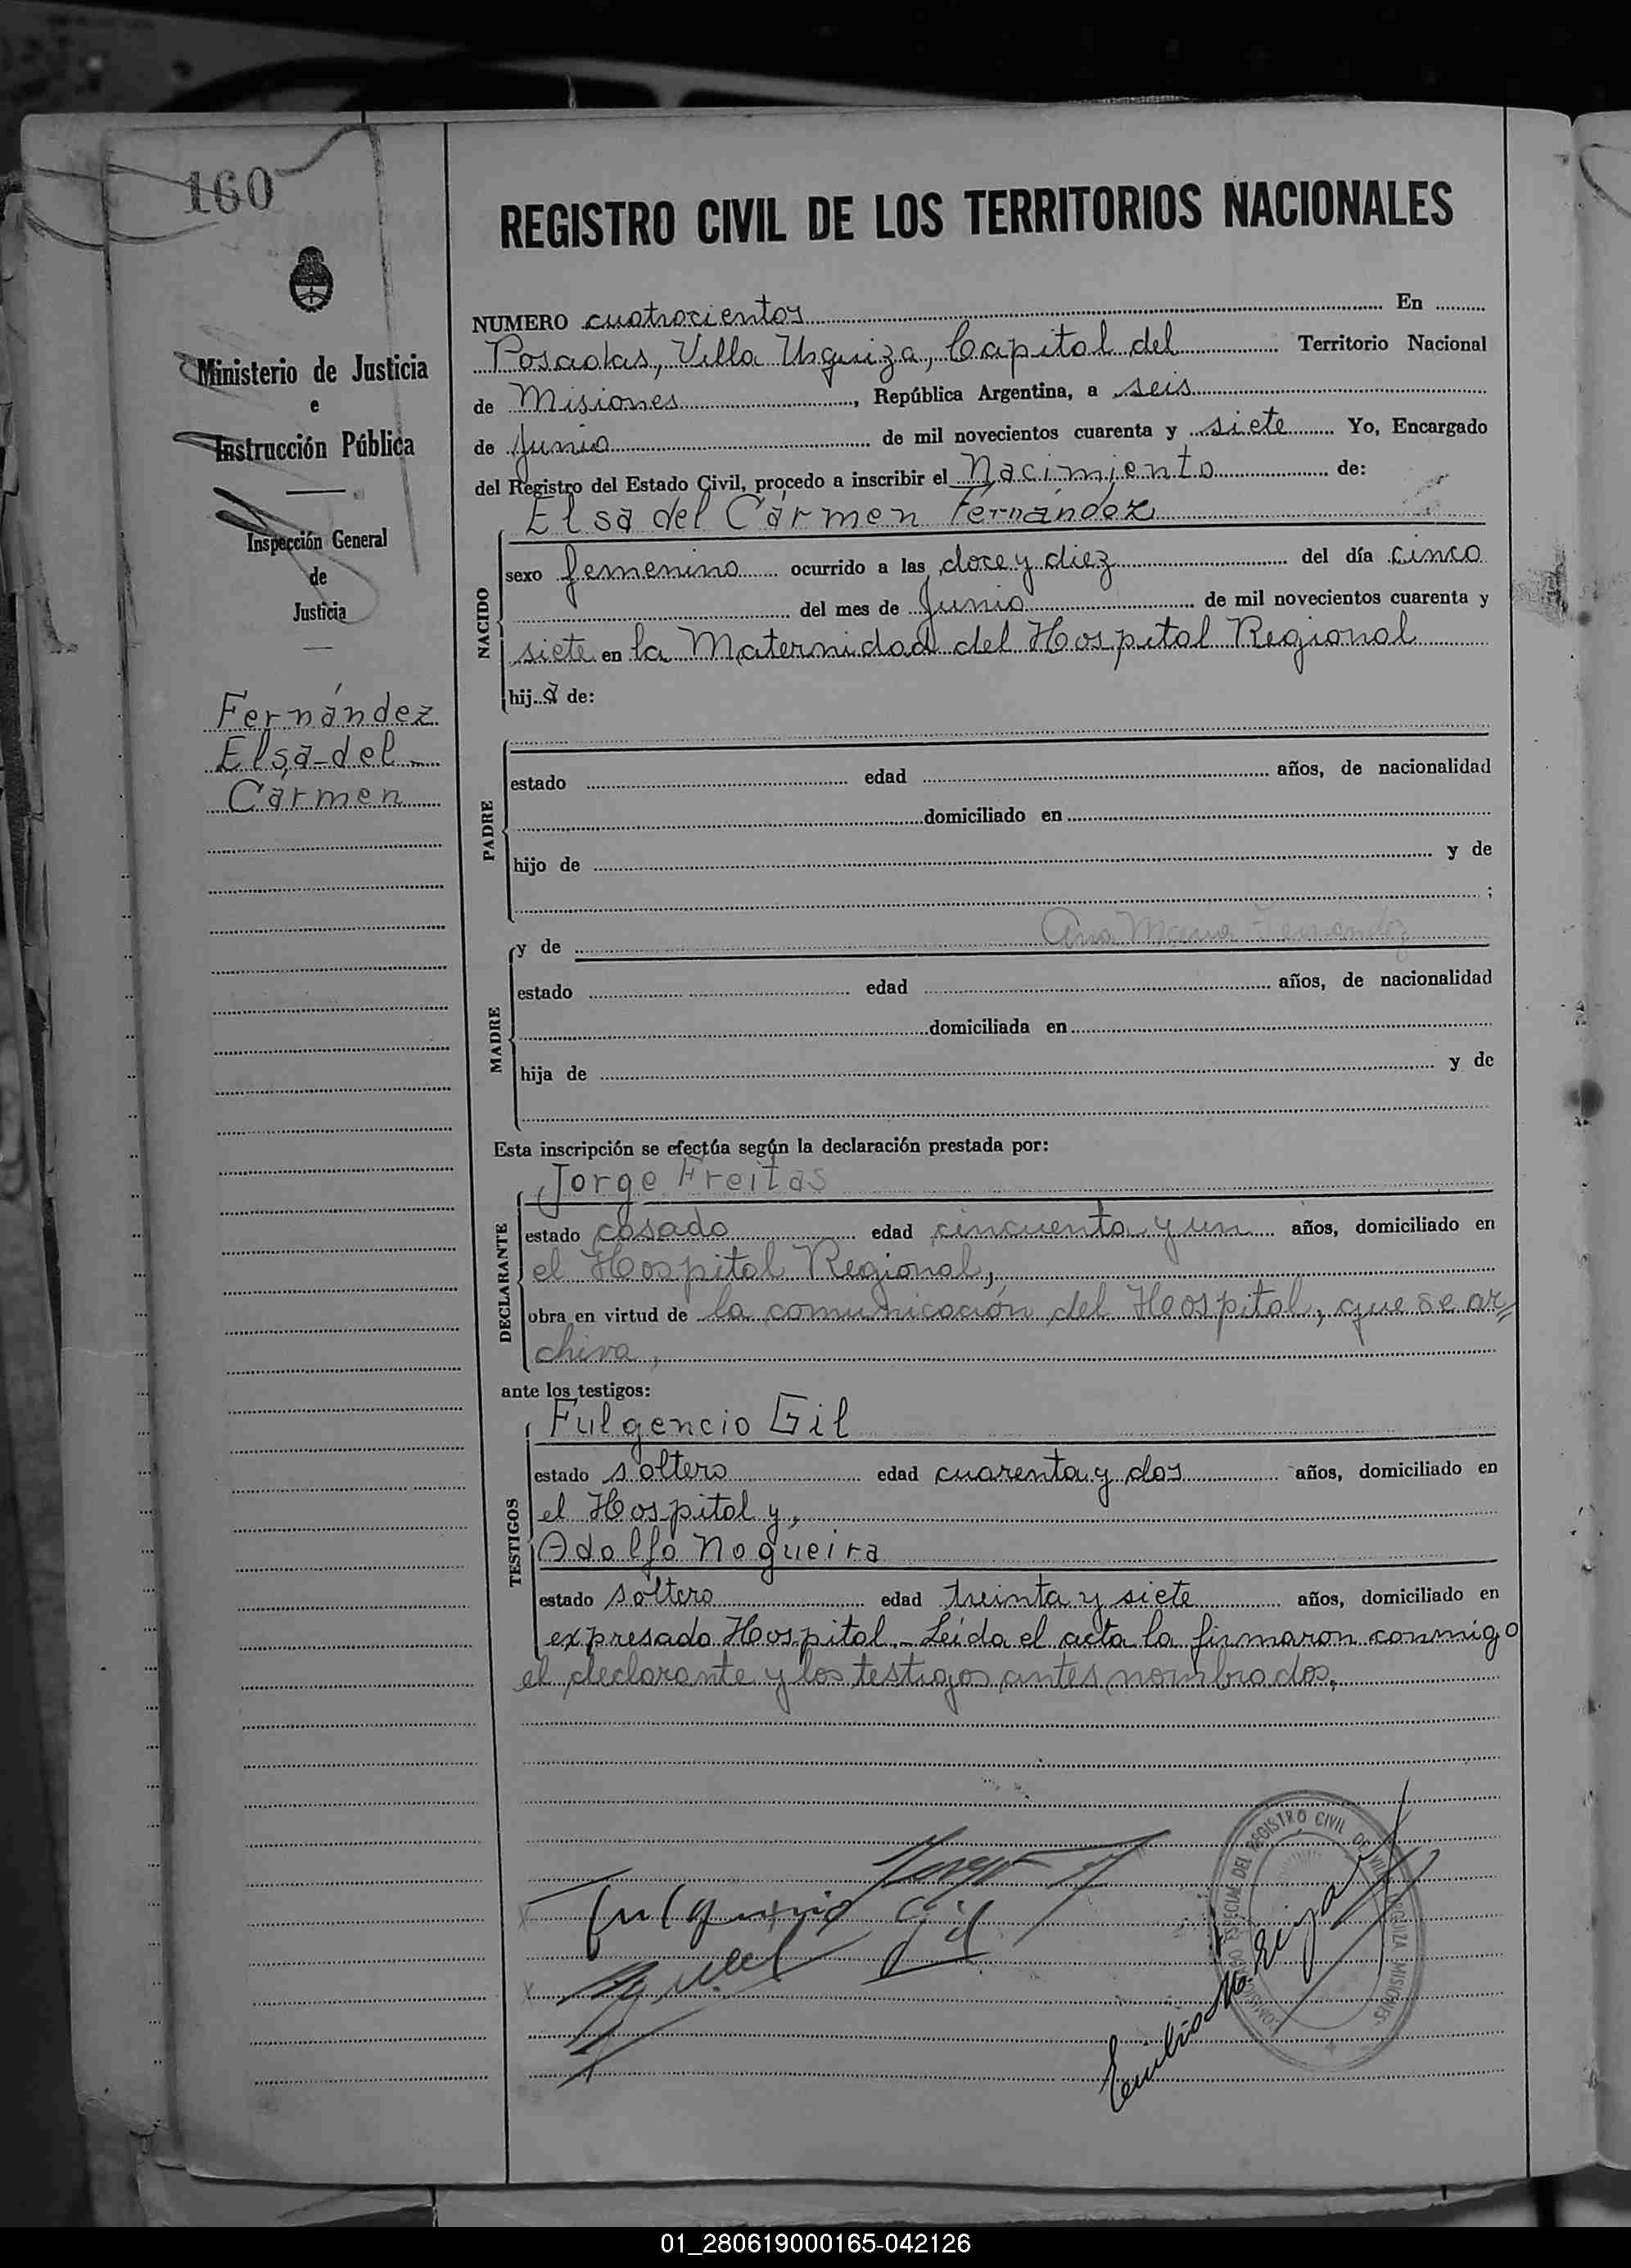 160
Ministerio de Justicia
e
Instrucción Pública
Inspección General
de
Justicia
Fernández
Elsa del
Cármen
REGISTRO CIVIL DE LOS TERRITORIOS NACIONALES
NUMERO cuatrocientos En
Posadas, Villa Urquiza, Capital del Territorio Nacional
de Misiones, República Argentina, a seis
de Junio de mil novecientos cuarenta y siete Yo, Encargado
del Registro del Estado Civil, procedo a inscribir el Nacimiento de:
Elsa del Cármen Fernández
NACIDO
sexo femenino ocurrido a las doce y diez del día cinco
del mes de Junio de mil novecientos cuarenta y
siete en la Maternidad del Hospital Regional
hija de:
PADRE
estado edad años, de nacionalidad
domiciliado en
hijo de y de
;
MADRE
y de Ana Maria Fernandez
estado edad años, de nacionalidad
domiciliada en
hija de y de
Esta inscripción se efectúa según la declaración prestada por:
DECLARANTE
Jorge Freitas
estado casado edad cincuenta y un años, domiciliado en
el Hospital Regional,
obra en virtud de la comunicación del Hospital, que se ar=
chiva,
ante los testigos:
TESTIGOS
Fulgencio Gil
estado soltero edad cuarenta y dos años, domiciliado en
el Hospital y,
Adolfo Nogueira
estado soltero edad treinta y siete años, domiciliado en
expresado Hospital.- Leida el acta la firmaron conmigo
el declarante y los testigos antes nombrados.
Fulgencio Gil
REGISTRO CIVIL DE VILLA URQUIZA - MISIONES
01_280619000165-042126